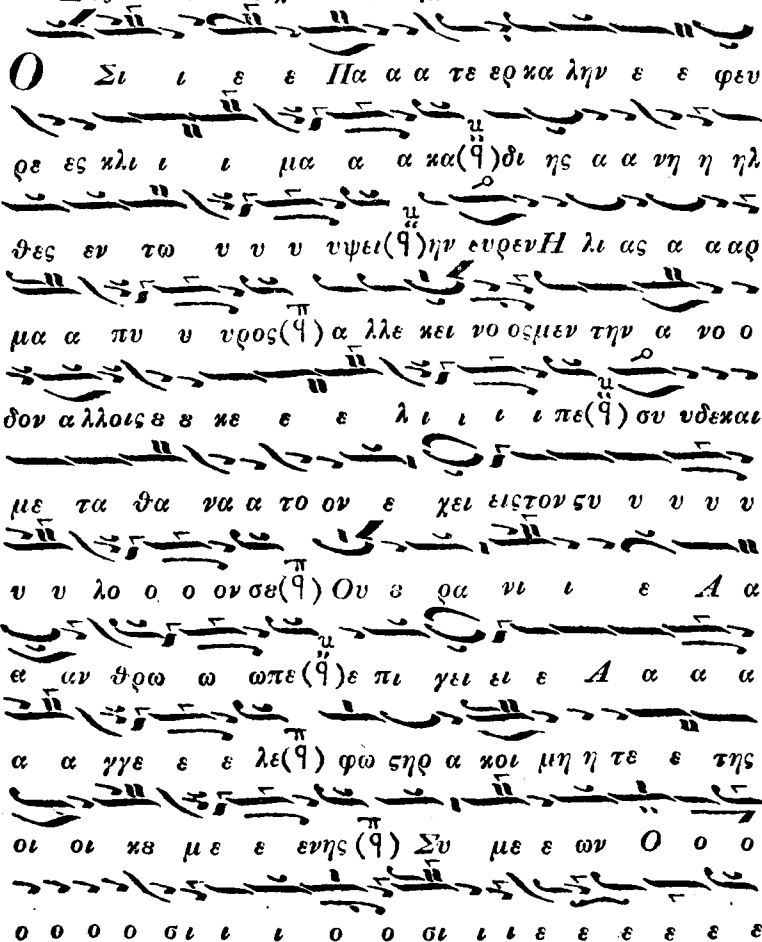 Ο Σι ι ε ε Πα α α τε ερ κα λην ε ε φευ
ρε ες κλι ι ι μα α α κα(q̈)δι ης α α νη η ηλ
θες εν τω υ υ υ υψει(q̈)ην ευρεν Η λι ας α α αρ
μα α πυ υ υρος(q) α λλε κει νο οςμεν την α νο ο
δον α λλοις ȣ ȣ κε ε ε λι ι ι ι πε(q̈) συ υδεκαι
με τα θα να α το ον ε χει ειςτον ϛυ υ υ υ υ
υ υ λο ο ο ον σȣ(q) Ου ȣ ρα νι ι ε Α α
α αν θρω ω ωπε(q̈)ε πι γει ει ε Α α α α
α α γγε ε ε λε(q) φὼ ϛηρ α κοι μη η τε ε της
οι οι κȣ με ε ενης (q) Συ με ε ων Ο ο ο
ο ο ο ο σι ι ι ο ο σι ι ι ε ε ε ε ε ε